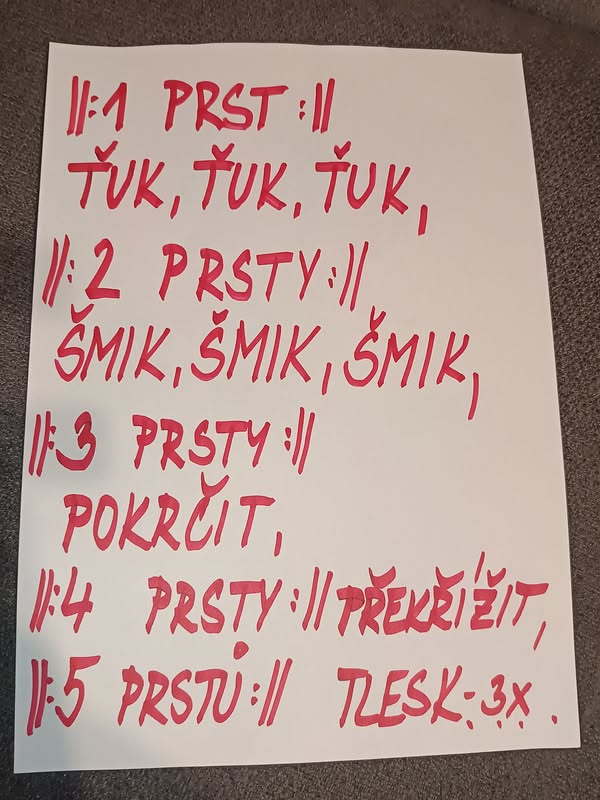 ||:1 PRST :||
ŤUK, ŤUK, ŤUK,
||:2 PRSTY :||
ŠMIK, ŠMIK, ŠMIK,
||:3 PRSTY :||
POKRČIT,
||:4 PRSTY :|| PŘEKŘÍŽIT,
||:5 PRSTŮ :|| TLESK - 3x.